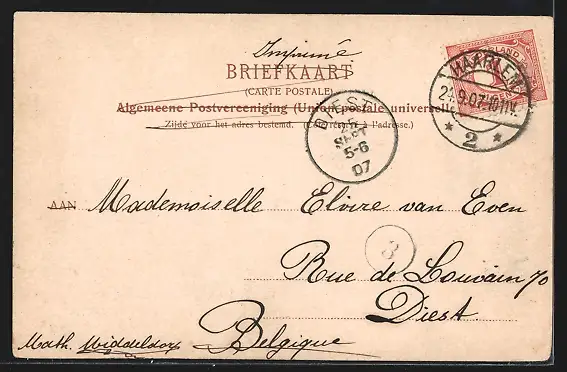 Imprimé
BRIEFKAART
(CARTE POSTALE)
Algemeene Postvereeniging (Union postale universelle)
Zijde voor het adres bestemd. (Côté réservé à l'adresse.)
HAARLEM
24.9.07.10-11V.
2
DIEST
25
SEPT
5-6
07
AAN Mademoiselle Elvire van Even
3
Rue de Louvain 70
Diest
Belgique
Math. Middeldorp